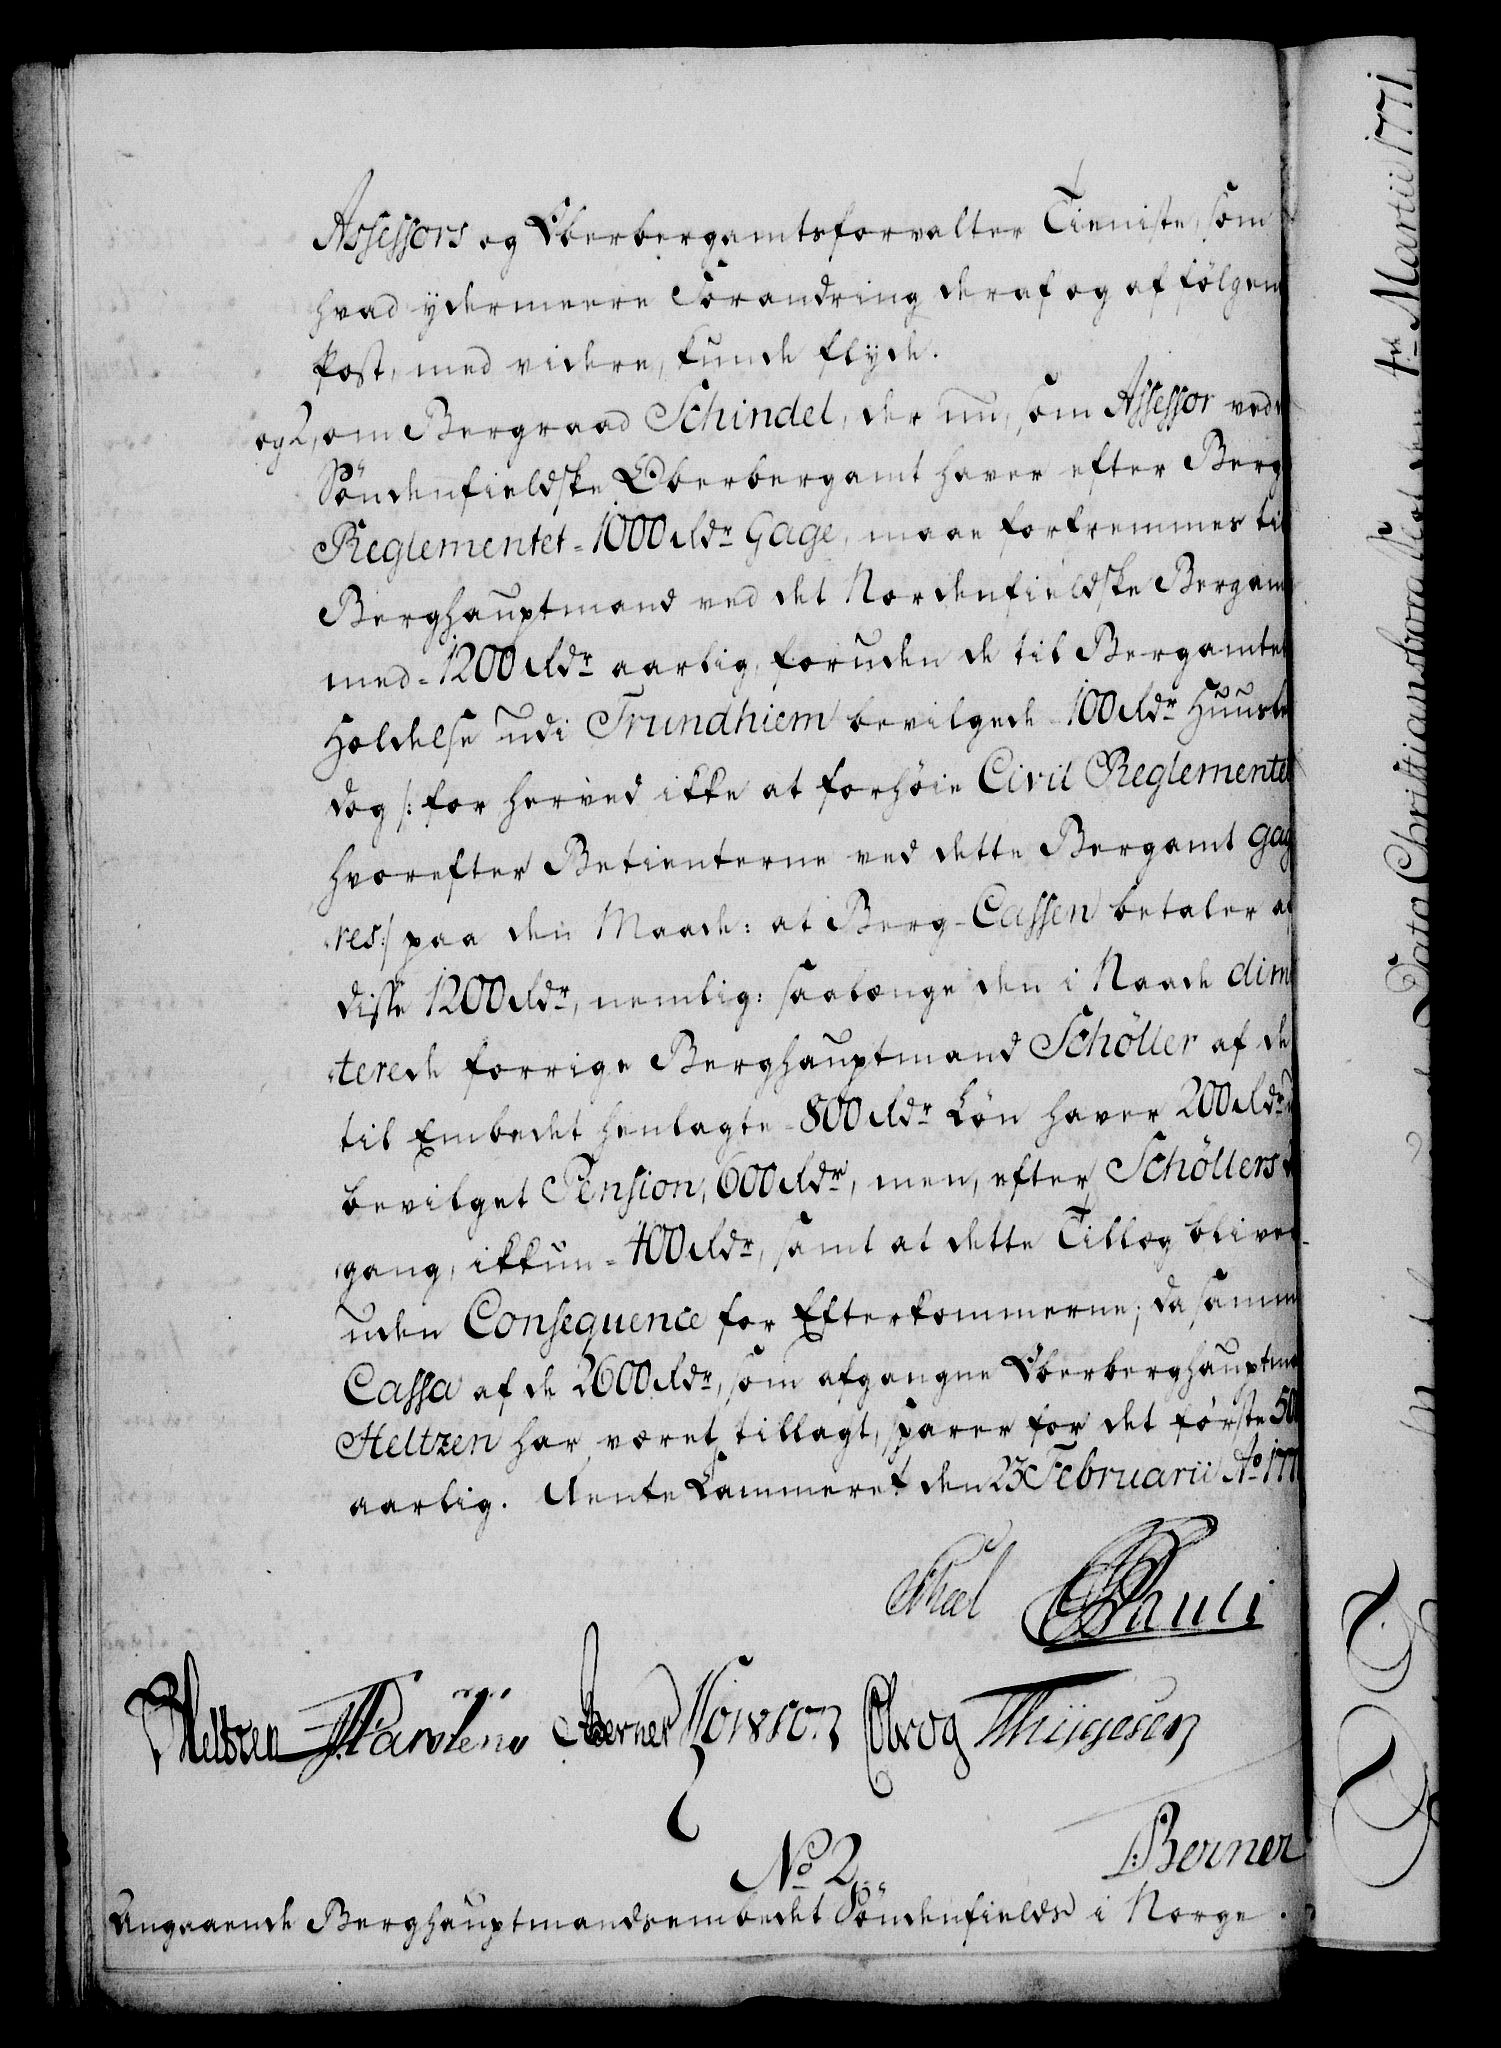 Assessors og Oberbergamtsforvalter Tieniste, som
hvad ydermeere Forandring deraf og af følgen
Post, med videre, kunde flyde.
og 2, om Bergraad Schindel, der nu, som Assessor ved
Søndenfieldske Oberbergamt haver efter Berg
Reglementet 1000 Rdr Gage, maae forfremmes til
Berghauptmand ved det Nordenfieldske Bergam
med 1200 Rdr aarlig, foruden de til Bergamte
Holdelse udi Trundhiem bevilgede 100 Rdr Huusle
dog /: for herved ikke at forhøie Civil Reglemente
hvorefter Betienterne ved dette Bergamt gag
res :/ paa den Maade: at Berg-Cassen betaler af
disse 1200 Rdr, nemlig: saalænge den i Naade dimi
terede forrige Berghauptmand Schöller af de
til Embedet henlagte 800 Rdr Løn haver 200 Rdr
bevilget Pension, 600 Rdr, men, efter Schöllers
gang, ikkun 400 Rdr, samt at dette Tillæg bliver
uden Consequence for Efterkommerne; da samme
Cassa af de 2600 Rdr, som afgangne Oberberghauptma
Heltzen har været tillagt, sparer for det første 50
aarlig. Rente Cammeret den 23 Februarii Ao 177
Pauli
Heltzen Berner Howson Thygesen
No 2
Berner
Angaaende Berghauptmandsembedet Søndenfields i Norge.
Dato Christiansborg Slot den 1te Martii 1771.